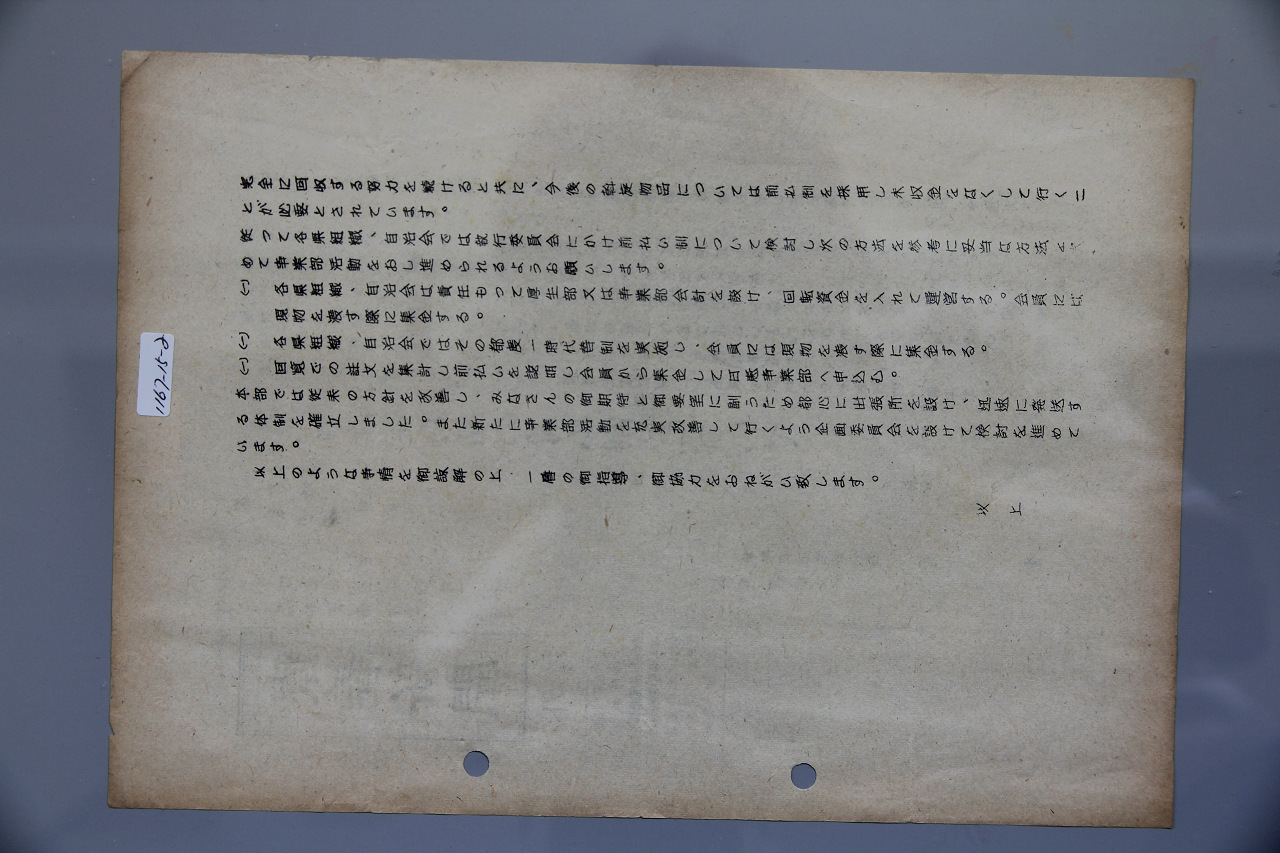 完全に回収する努力を続けると共に、今後の斡旋物品については前払制を採用し未収金をなくして行くこ
とが必要とされています。
従って各県組織、自治会では執行委員会にかけ前払い制について検討し次の方法を参考に妥当な方法を
めて事業部活動をおし進められるようお願いします。
(一) 各県組織、自治会は責任もって厚生部又は事業部会計を設け、回転資金を入れて運営する。会員には
現物を渡す際に集金する。
(一) 各県組織、自治会ではその都度一時代替制を実施し、会員には現物を渡す際に集金する。
(一) 回覧での註文を集計し前払いを説明し会員から集金して日患事業部へ申込む。
本部では従来の方針を改善し、みなさんの御期待と御要望に副うため都心に出張所を設け、迅速に発送す
る体制を確立しました。また新たに事業部活動を充実改善して行くよう企画委員会を設けて検討を進めて
います。
以上のような事情を御諒解の上、一層の御指導、御協力をおねがひ致します。
以 上
1167-15-2